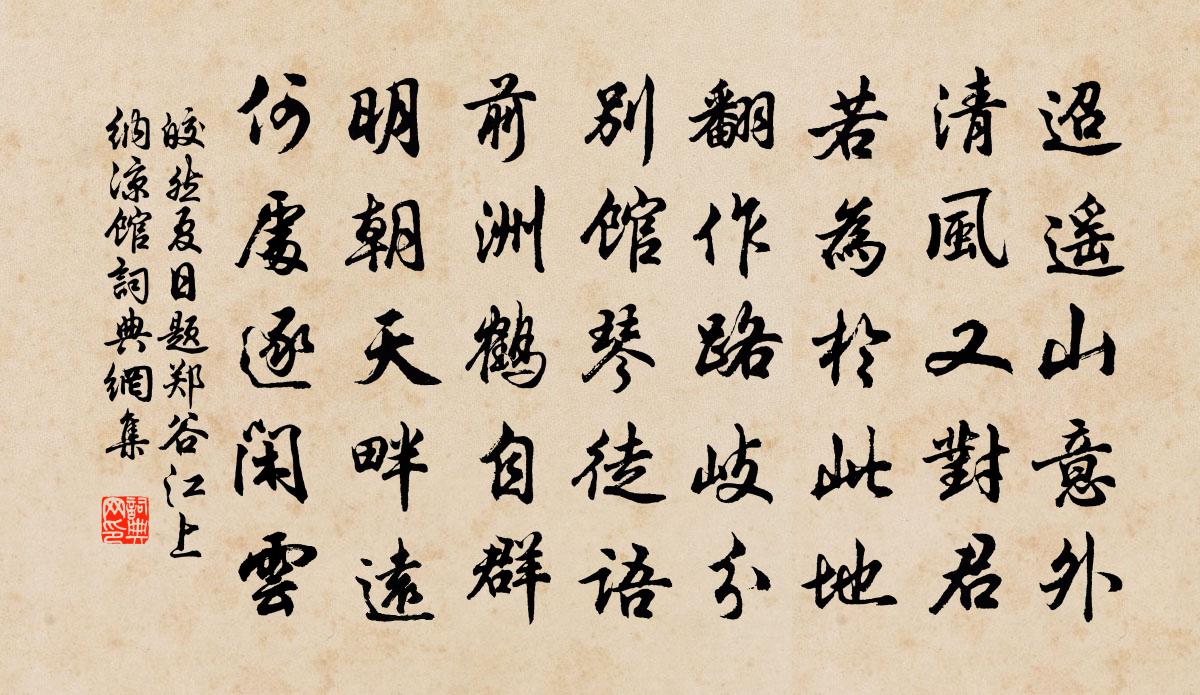 迢遥山意外
清風又對君
若為於此地
翻作路岐分
别館琴徒語
前洲鶴自群
明朝天畔遠
何處逐閑雲
皎然夏日题郑谷江上
納涼館詞典網集
詞典网印